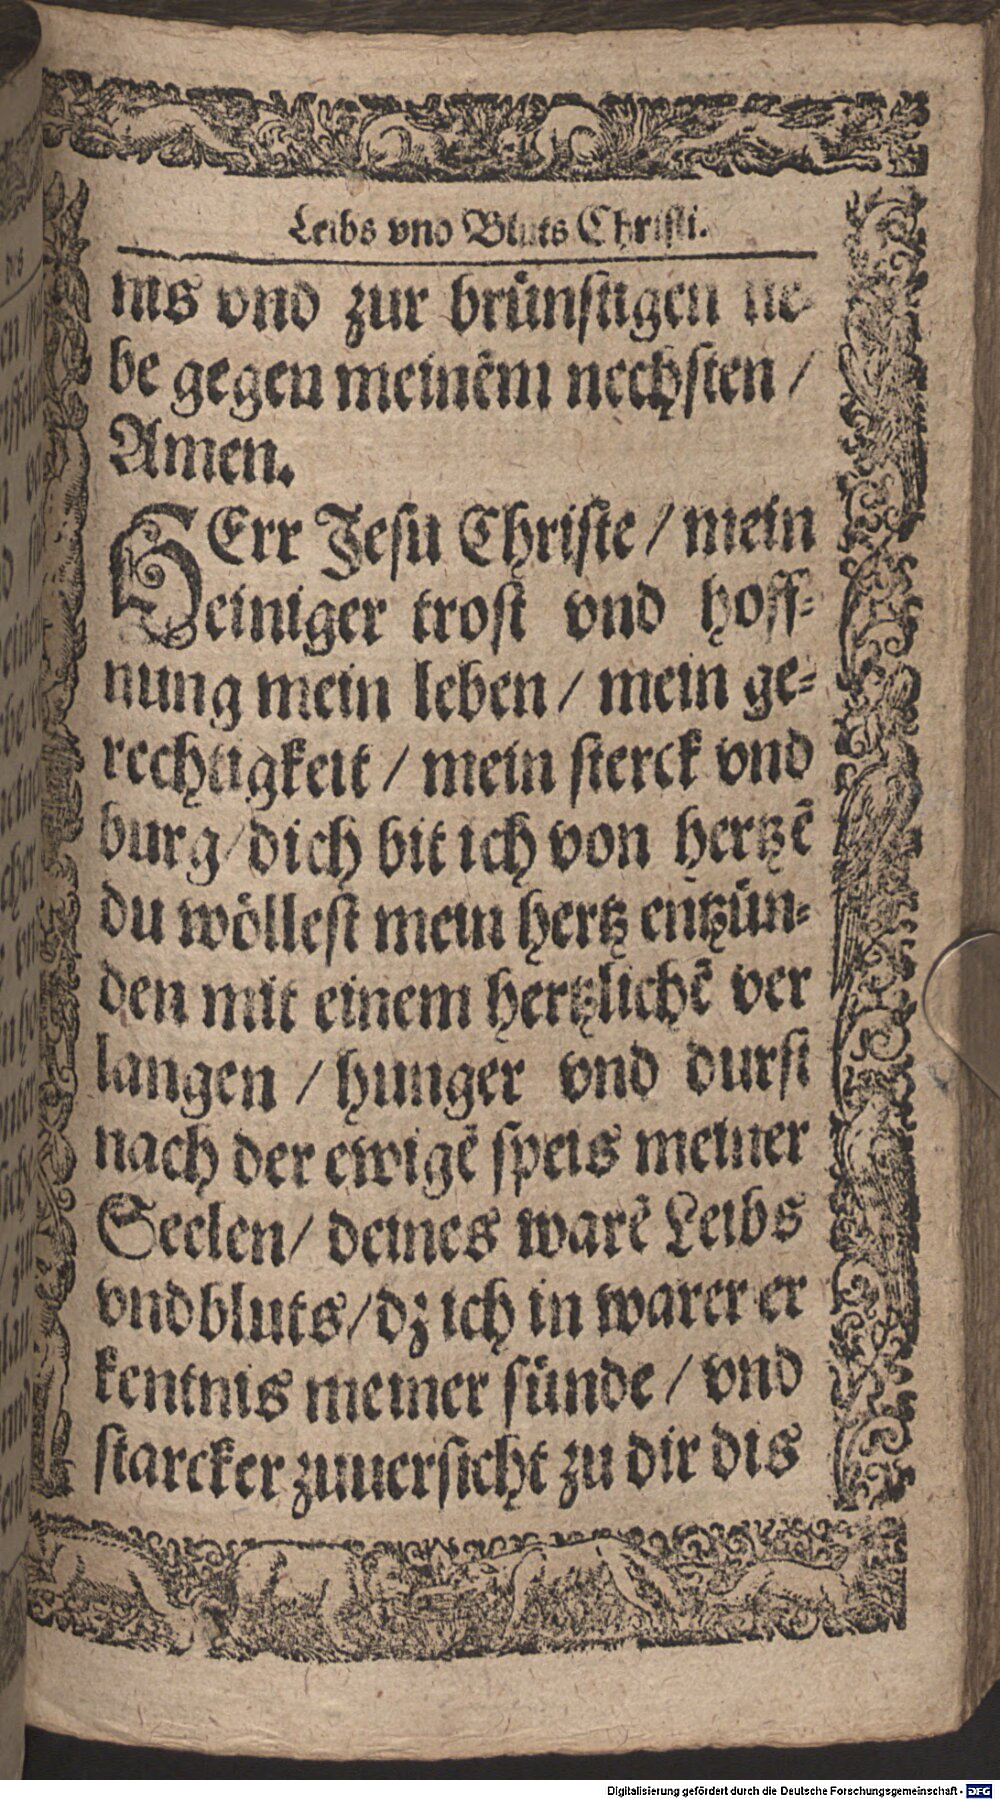 Leibs vnd Bluts Christi.
nis vnd zur brünstigen lie-
be gegen meinem nechsten /
Amen.
HErr Jesu Christe / mein
einiger trost vnd hoff-
nung mein leben / mein ge-
rechtigkeit / mein sterck vnd
burg / dich bit ich von hertzẽ
du wöllest mein hertz entzün-
den mit einem hertzlichẽ ver
langen / hunger vnd durst
nach der ewigẽ speis meiner
Seelen / deines warẽ Leibs
vnd bluts / dz ich in warer er
kentnis meiner sünde / vnd
starcker zuuersicht zu dir dis
Digitalisierung gefördert durch die Deutsche Forschungsgemeinschaft - DFG